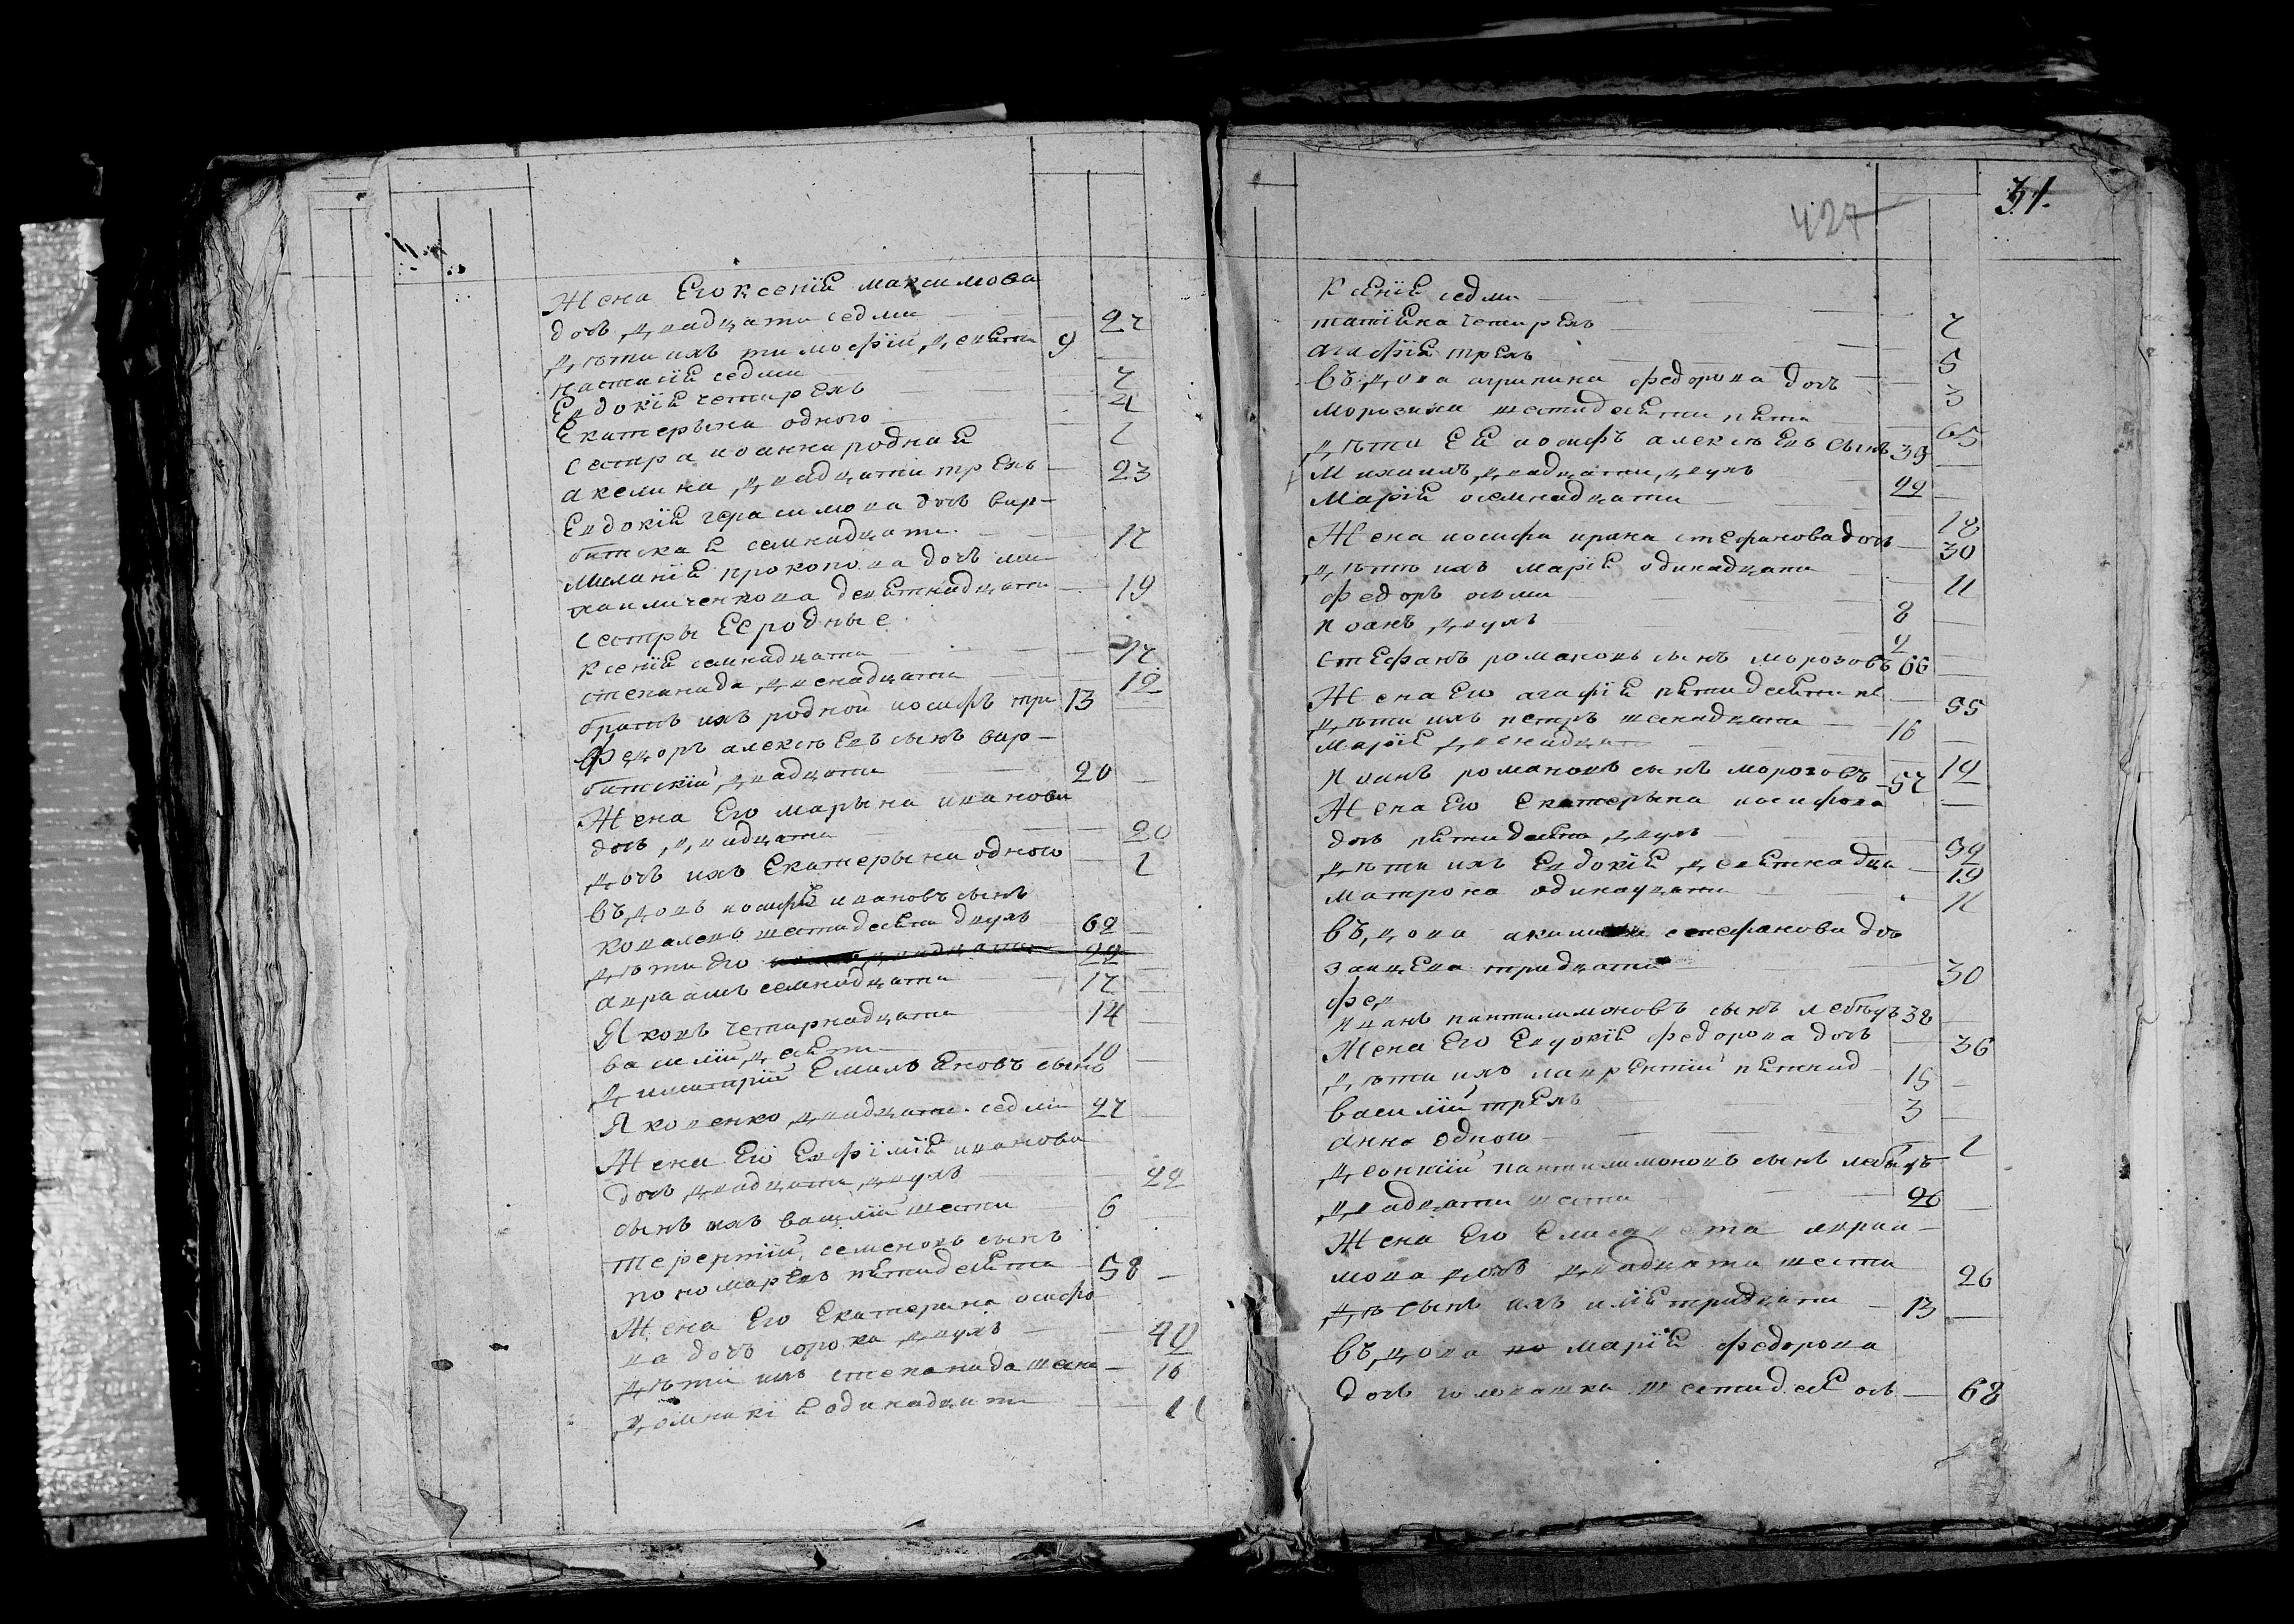 Жена Его ксенїя максимова
дочь двадцати седми 27
дѣти ихъ тимофїй девяти 9
настасїя седми 7
Евдокїя четирехъ 4
Екатерына одного 1
сестра иоанна родная
акелина двадцати трехъ 23
Евдокїя герасимова дочь вар-
семнадцати 17
миланїя прокопова дочь ми-
хаиличенкова девятнадцати 19
сестры Ее родные
ксенїя семнадцати 17
степанида двенадцати 12
братъ ихъ родной иосифъ три 13
Федоръ алексѣевъ сынъ вар-
двадцати 20
Жена Его марына иванова
дочь двадцати 20
дочь ихъ Екатерына одного 1
въдовъ иосифъ ивановъ сынъ
ковалевъ шестидесяти двухъ 62
дѣти Его 22
авраамъ семнадцати 17
Яковъ четирнадцати 14
василїй десяти 10
димитрїй Емельяновъ сынъ
Яковенко двадцати седми 27
Жена Его Евфимїя иванова
дочь двадцати двухъ 22
сынъ ихъ василїй шести 6
терентїй семеновъ сынъ
пономаревъ пятидесяти 58
Жена Его Екатерина осифо
ва дочь сорока двухъ 42
дѣти ихъ степанида шесна 16
домникїя одинадцати 11
427
31.
Ксенїя седми 7
татїяна четирехъ 5
агафїя трехъ 3
въдова агрипина федорова дочь
морозина шестидесяти пяти 65
дѣти Ея иосифъ алексѣевъ сынъ 39
Михаилъ двадцати двухъ 22
Марїя осемнадцати 18
Жена иосифа ирина стефанова дочь 30
дѣти ихъ марїя одинадцати 11
федоръ осьми 8
иоанъ двухъ 2
стефанъ романовъ сынъ морозовъ 66
Жена Его агафїя пятидесяти пя 55
дѣти ихъ петръ шенадцати 16
марїя двенадцат 12
иоанъ романовъ сынъ морозовъ 57
Жена Его Екатерына иосифова
дочь пятидесяти двухъ 52
дѣти ихъ Евдокїя девятнадца 19
матрона одинадцати 11
въдова акилина стефанова дочь
заицева тридцати 30
фед
иванъ пантилимоновъ сынъ лебѣдь 38
Жена Его Евдокїя федорова дочь 36
дѣти ихъ лаврентїй пятнад 15
василїй трехъ 3
анна одного 1
леонтїй пантилимоновъ сынъ лебѣдь
двадцати шести 26
Жена Его Елисавета
мова дочь двадцати шести 26
дѣ сынъ ихъ илїя тридцати 13
въдова по марїя федорова
дочь головашка шестидесяосъ 68